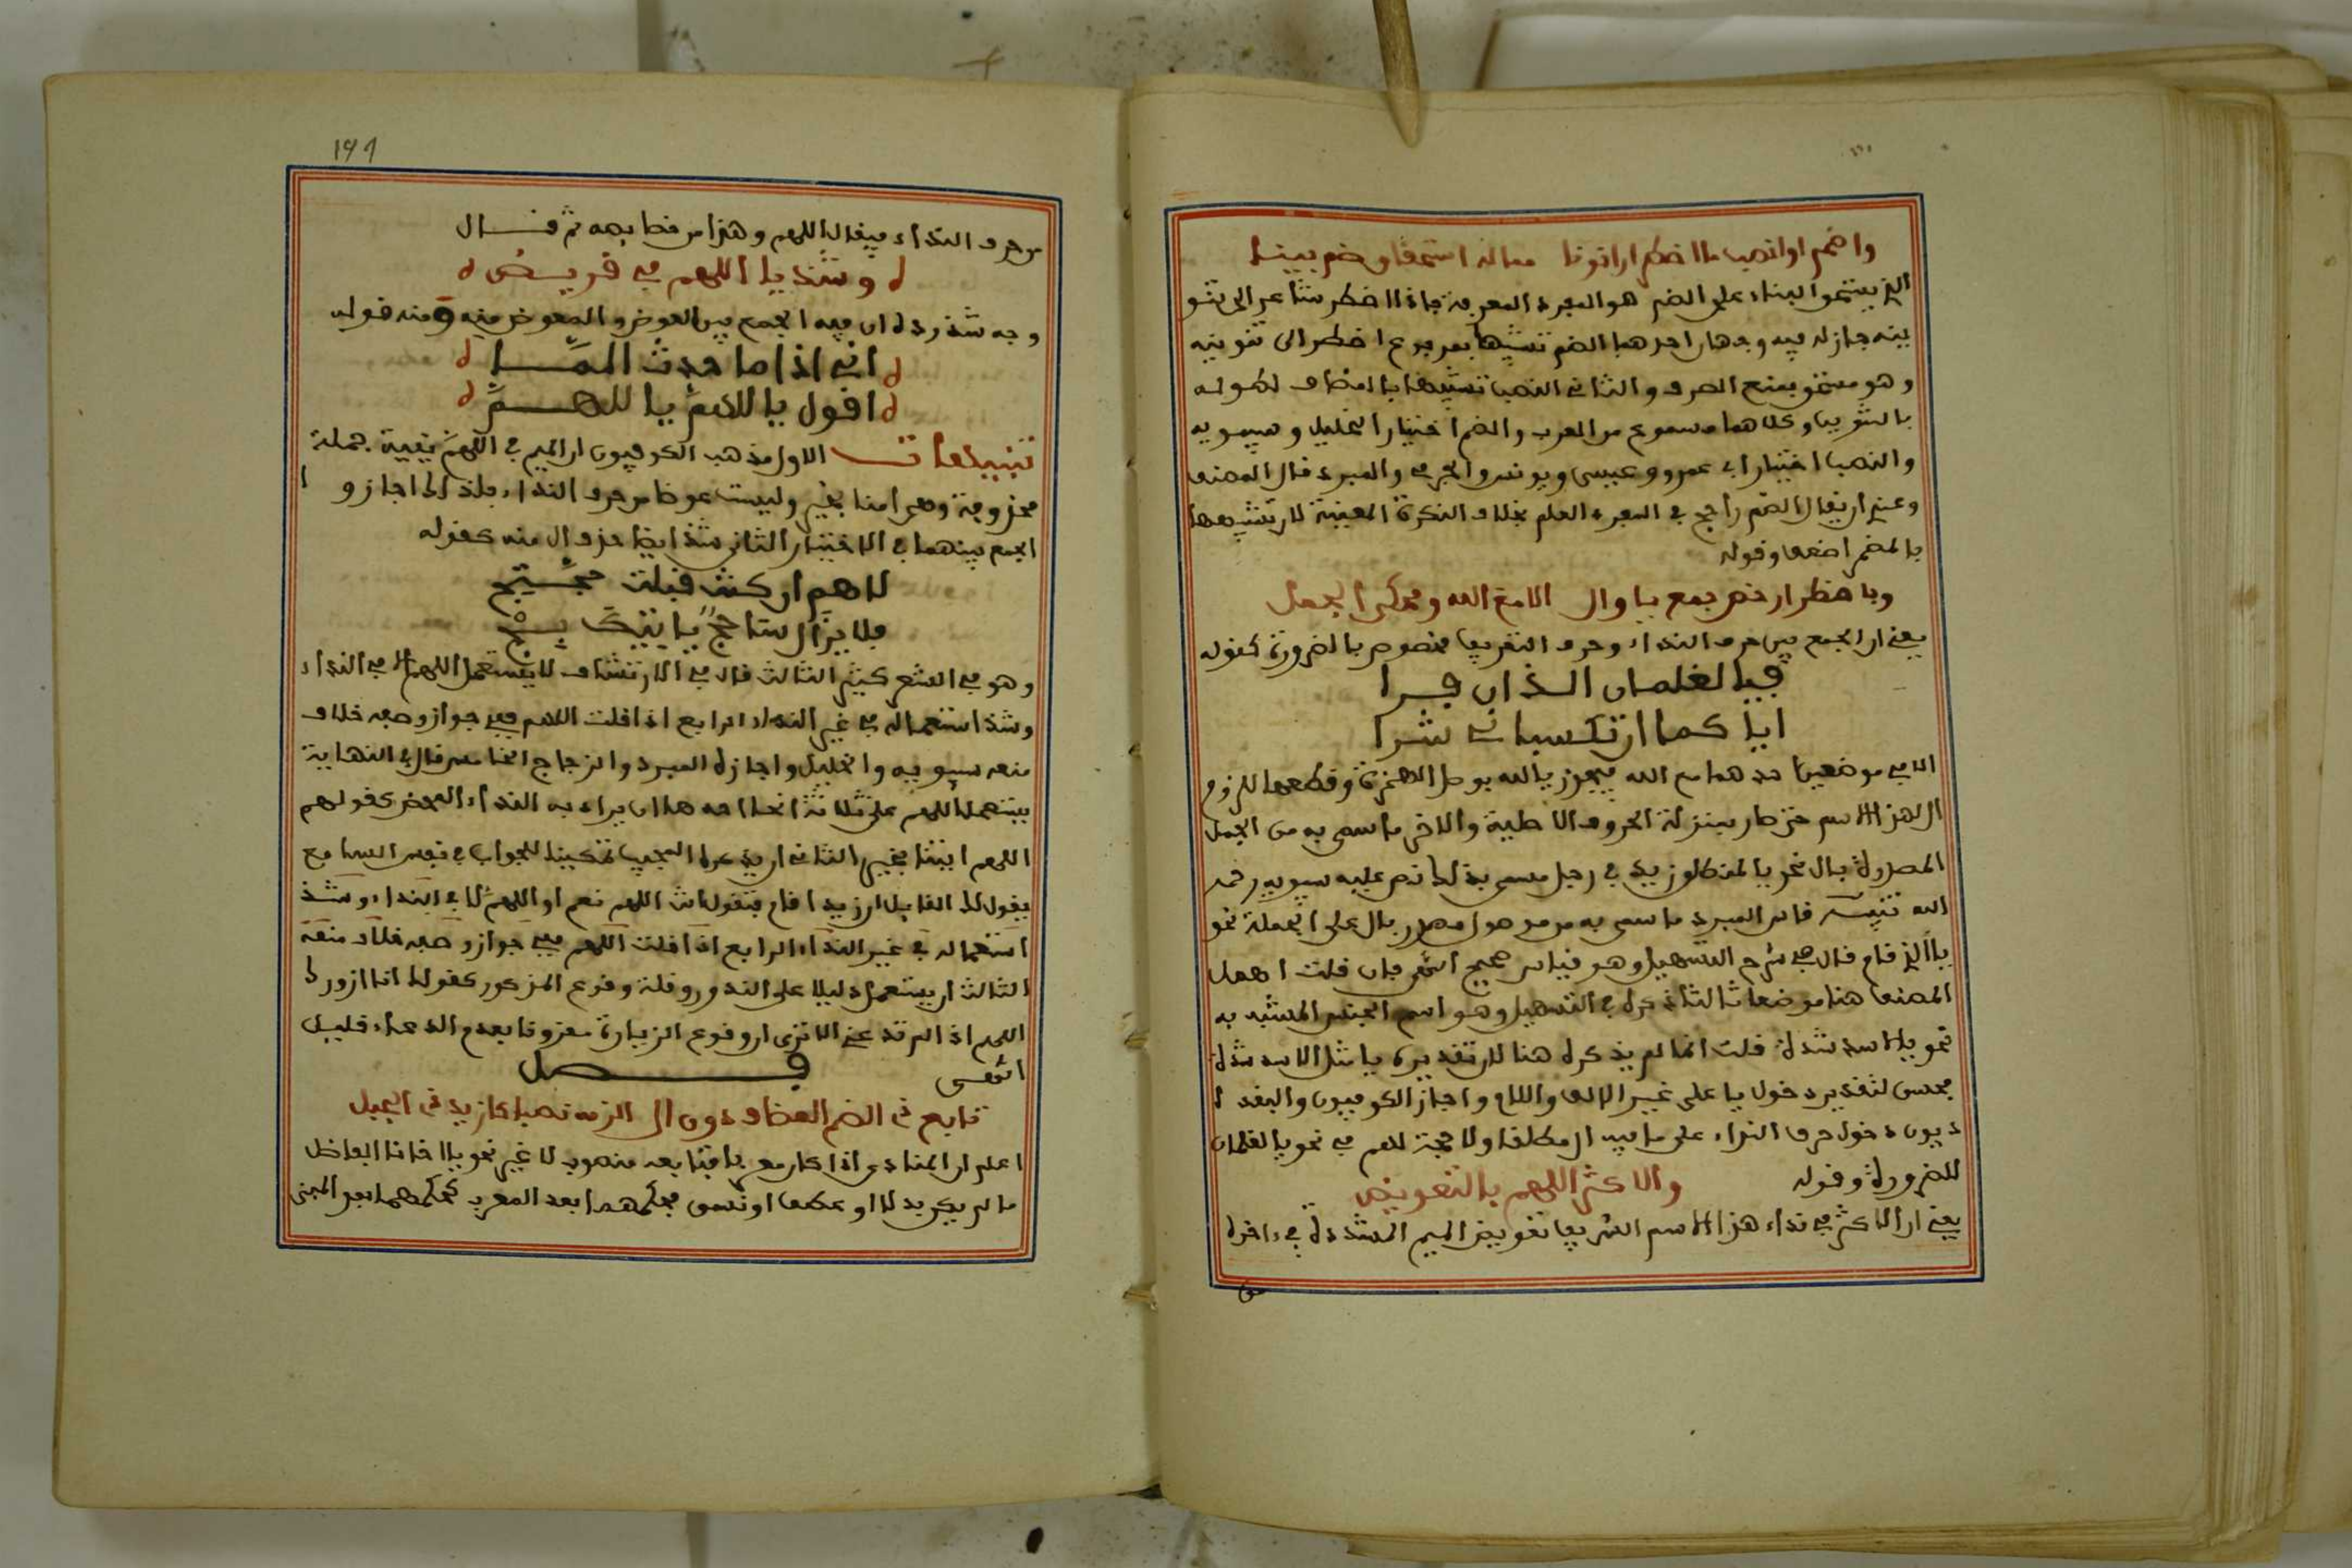 واضمم او انصب ما اضطرارا نونا مما له استحقاق ضم بينا
الذي يستحق البناء على الضم هو المفرد المعرفة فاذا اضطر شاعر الى تنو
ينه جاز له فيه وجهان احدهما الضم تشبيها بمرفوع اضطر الى تنوينه
وهو مستحق بمنع الصرف والثاني النصب تشبيها بالمضاف لطوله
بالتنوين وكلاهما مسموع من العرب والضم اختيار الخليل وسيبويه
والنصب اختيار ابي عمرو وعيسى ويونس والجرمي والمبرد قال المصنف
وعندي ان يقال الضم راجح في المفرد العلم بخلاف النكرة المعينة لان شبهها
بالمضمر اضعف وقوله
وباضطرار خص جمع يا وال الا مع الله ومحكي الجمل
يعني ان الجمع بين حرف النداء وحرف التعريف مخصوص بالضرورة كقوله
فيا الغلمان اللذان فرا
ايا كما ان تكسبانى شرا
الا في موضعين احدهما مع الله فيجوز يا الله بوصل الهمزة وقطعها للزوم
ال لهذا الاسم حتى صار بمنزلة الحروف الاصلية والاخر ما سمي به من الجمل
المصدرة بال نحو يا المنطلق زيد في رجل مسمى بذلك نص عليه سيبويه رحمه
الله تنبيه قاس المبرد ما سمي به من موصول مصدر بال على الجملة نحو
يا الذي قام قال في شرح التسهيل وهو قياس صحيح انتهى فان قلت اهمل
المصنف هنا موضعا ثالثا ذكره في التسهيل وهو اسم الجنس المشبه به
نحو يا الاسد شدة قلت انما لم يذكره هنا لان تقديره يا مثل الاسد شدة
فحسن لتقدير دخول يا على غير الالف واللام واجاز الكوفيون والبغد ا
ديون دخول حرف النداء على ما فيه ال مطلقا ولا حجة لهم في نحو يا الغلمان
للضرورة وقوله والاكثر اللهم بالتعويض
يعني ان الاكثر في نداء هذا الاسم الشريف تعويض الميم المشددة في ءاخره
من
191
من حرف النداء فيقال اللهم وهذا من خصائصه ثم قال
وشذ يا اللهم في قريض
وجه شذوذه ان فيه الجمع بين العوض والمعوض منه ومنه قوله
اني اذا ما حدث المـــا
اقول يا اللهم يا اللهـــم
تنبيهات الاول مذهب الكوفيون ان الميم في اللهم بقية جملة
محذوفة وهي امنا بخير وليست عوضا من حرف النداء فلذلك اجازو ا
الجمع بينهما في الاختيار الثاني شذ ايضا حذف ال منه كقوله
لاهم ان كنت قبلت حجتج
فلا يزال شاحج ياتيك بج
وهو في الشعر كثير الثالث قال في الارتشاف لا يستعمل اللهم الا في النداء
وشذ استعماله في غير النداء الرابع اذا قلت اللهم ففي جواز وصفه خلاف
منعه سيبويه والخليل واجازه المبرد والزجاج الخامس قال في النهاية
يستعمل اللهم على ثلاثة انحاء احدها ان يراد به النداء المحض كقولهم
اللهم اثبنا بخير الثاني ان يذكره المجيب تمكينا للجواب في نفس السامع
يقول لك القايل ازيد قام فتقول انت اللهم نعم او اللهم لا في النداء وشذ
استعماله في غير النداء الرابع اذا قلت اللهم ففي جواز وصفه خلاف منعه
الثالث ان يستعمل دليلا على الندور وقلة وقوع المذكور كقولك انا ازورك
اللهم اذا لم تدعني الا ترى ان وقوع الزيارة مقرونا بعدم الدعاء قليل
انتهى فـــصل
تابع ذي الضم المضاف دون ال الزمه نصبا كازيد ذي الحيل
اعلم ان المنادى اذا كان معربا فتابعه منصوب لا غير نحو يا اخانا الفاضل
ما لم يكن بدلا او عطف او نسق فحكمهما بعد المعرب كحكمهما بعد المبنى